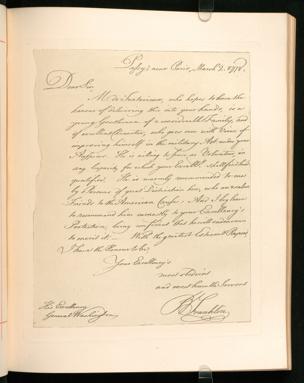 Passy near Paris, March 2. 1778.
Dear Sir,
M. de Fontevieux, who hopes to have the
honour of delivering this into your hands, is a
young Gentleman of a considerable Family, and
of excellent Character, who goes over with Views of
improving himself in the military Art under your
Auspices. He is willing to serve as Volunteer, in
any Capacity for which your Excelly. shall find him
qualified. He is warmly recommended to me
by Persons of great Distinction here, who are zealous
Friends to the American Cause. And I beg leave
to recommend him earnestly to your Excellency's
Protection, being confident that he will endeavour
to merit it. With the greatest Esteem & Respect,
I have the Honour to be,
Your Excellency's
most obedient
and most humble Servant
B Franklin
His Excellency
General Washington